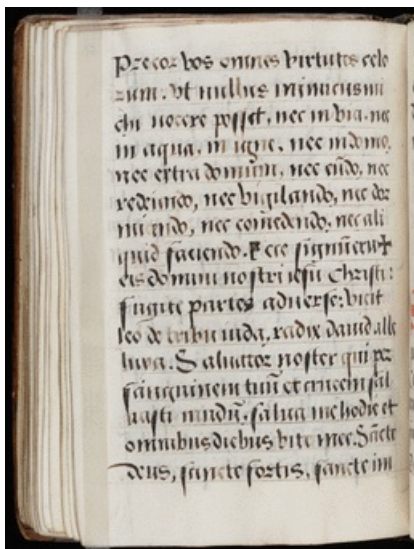 Precor vos omnes virtutes celo
rum. vt nullus inimicus mi
chi nocere posset, nec in via. nec
in aqua, in igne, nec in domo,
nec extra domum, nec eūdo, nec
redeundo, nec vigilando, nec dor
miendo, nec comedendo, nec ali
quid faciendo. ecce signū cru
cis domini nostri iesu Christi:
fugite partes aduerse: vicit
leo de tribu iuda, radix dauid. alle
luya. Saluator noster qui per
sanguinem tuū et crucem sal
uasti mūdū. salua me hodie et
omnibus diebus vite mee. Sancte
deus, sancte fortis, sancte im